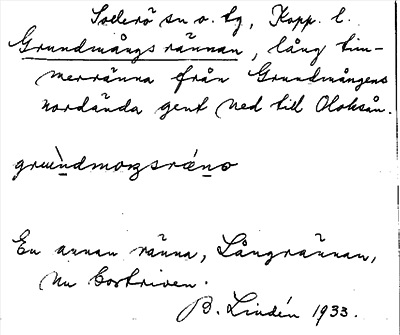 Söderö sn o. tg, Kopp. l.
Grundmångsrännan, lång tim-
merränna från Grundmångens
nordända gent ned till Oloksån.
En annan ränna, Långrännan,
nu bortriven.
B. Lindén 1933.